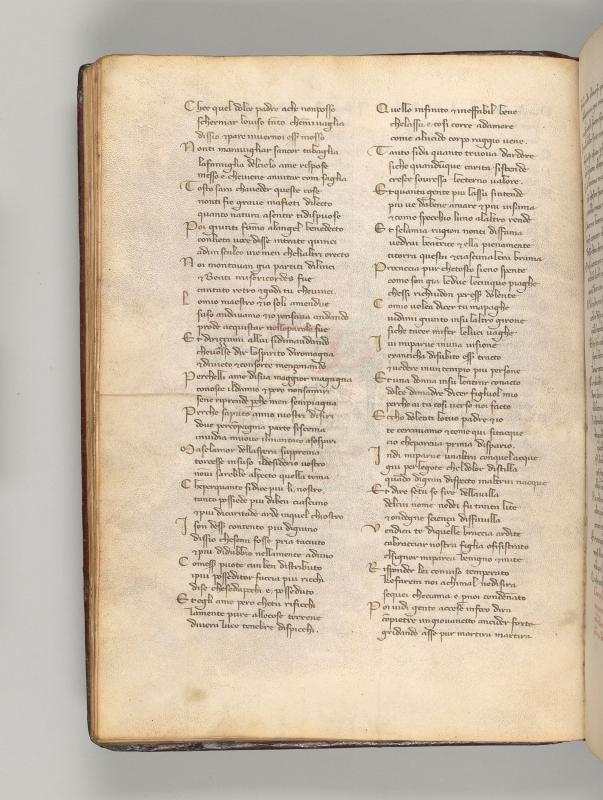 Chee quel dolce padre ache nonposso
schermar loviso tāto chemivaglia
dissio & pare inver noi esser mosso
Nonti maravigliar sancor tabaglia
lafamiglia delcielo ame rispose
messo e cheviene aīnvitar com saglia
Tosto sara chaveder queste cose
nonti fie grave mafieti dilecto
quanto natura asentir tidispuose
Poi giunti fūmo alangel benedecto
conlieta voce disse intrate quinci
adun scaleo vie men chelialtri erecto
Noi montavan gia partiti dilinci
& Beati misericordes fue
cantato retro & godi tu chevinci
Lo mio maestro & io soli amendue
suso andavamo & io pensava andando
prode acquistar nelleparole sue
Et dirizzami allui sidimandando
chevolse dir lospirto diromagna
& divieto & consorte menzonando
Perchelli ame disua maggior magagna
conosce ildanno & pero nonsamiri
sene riprende perche men sempiagna
Perche sapūtano anno ivostri disiri
dove percompagnia parte siscema
invidia muove ilmantaco asospiri
Ma selamor dellaspera supprema
torcesse insuso ildesiderio vostro
nonvi sarebbe alpecto quella tema
Cheperquanto sidice piu li nostro
tanto possiede piu diben ciascuno
& piu dicaritade arde inquel chiostro
Ison desser contento piu digiuno
dissio chesemi fosse pria taciuto
& piu didubbio nellamente aduno
Comessr puote cun ben distributo
ipiu posseditor faccia piu ricchi
dise chesedapochi e posseduto
Et egli ame pero cheti rificchi
lamente pure allecose terrene
divera luce tenebre dispicchi.
Quello infinito & ineffabil bene
chelassu e cosi corre adamore
come alucido corpo raggio vene.
Tanto sida quanto truova dardore
siche quandūque carita sistende
cresce sovressa leterno valore.
Et quanta gente piu lassu sintende
piu ve dabene amare & piu vissama
& come specchio luno alaltro rende
Et selamia ragion nonti disfama
vedrai beatrice & ella pienamente
titorra questa & ciascunaltra brama
Procaccia pur chetosto sieno spente
come son gia ledue lecinque piaghe
chessi richiudon peressr dolente
Como volea dicer tu mapaghe
vidimi giunto insu laltro girone
siche tacer mifer leluci vaghe
Ivi miparve inuna visione
extaticha disubito essr tracto
& vedere inun tempio piu persone
Et una donna insu lentrar conacto
dolce dimadre dicer figluol mio
perche ai tu cosi verso noi facto
Ecco dolenti lotuo padre & io
te cercavamo & come qui sitacque
cio chepareva prima dispario.
Indi miparve unaltra conquellacque
giu perlegote cheldolor distilla
quādo digran dispecto inaltrui nacque
Et dire setu se sire dellavilla
delcui nome nedei fu tanta lite
& ondogne scienza disfavilla
Vendica te diquelle braccia ardite
cabracciar nostra figlia opisistrato
elsignor miparea benigno & mite
Risponder lei conviso temperato
Chefarem noi achimal nedisira
seque checiama e pnoi condēnato
Poi vidi gente accese infoco dira
conpietre un giovanetto ancider forte
gridando asse pur martira martira